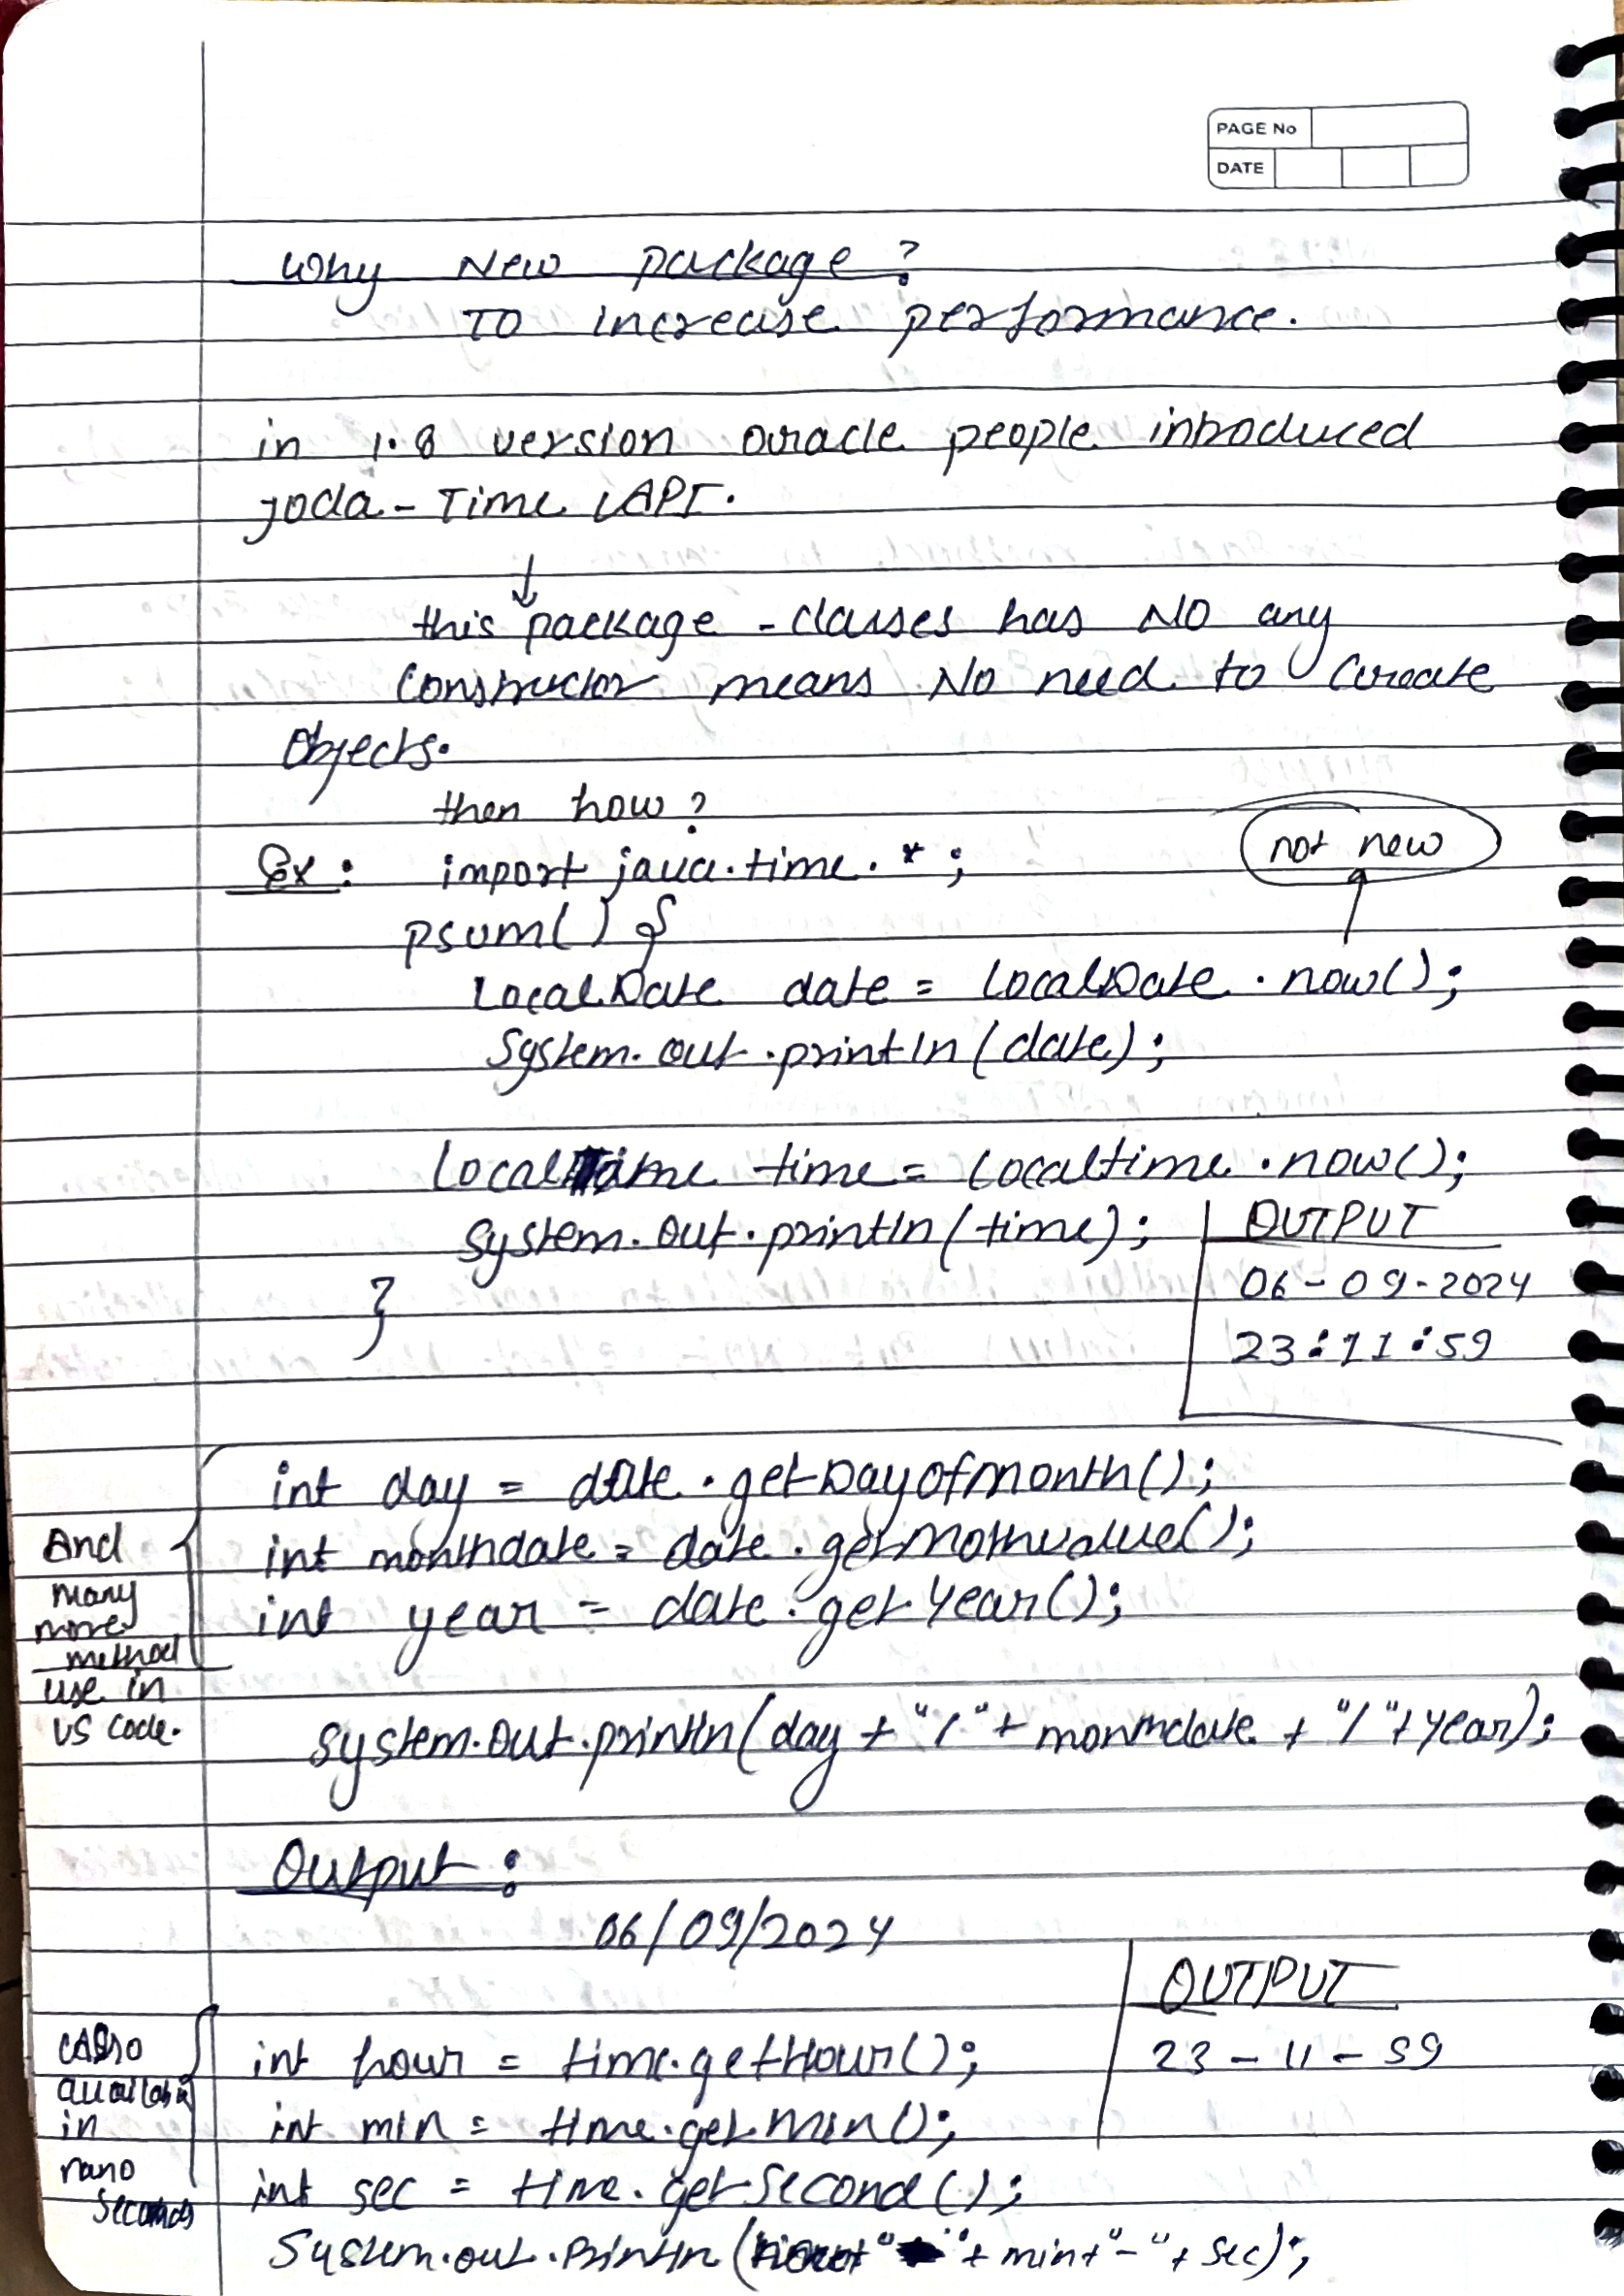 PAGE No
DATE
Why New package?
To increase performance.
in 1.8 version oracle people introduced
joda-Time API.
↓
this package - classes has NO any
constructor means No need to create
Objects.
then how?
not new
Ex: import java.time.*;
psvm() {
LocalDate date = LocalDate.now();
System.out.println(date);
LocalTime time = Localtime.now();
System.out.println(time);
}
OUTPUT
06-09-2024
23:11:59
int day = date.getDayofmonth();
int monthdate = date.getmonthvalue();
int year = date.getYear();
And
many
more
method
use in
VS code.
System.out.println(day + "/" + monthdate + "/" + year);
Output:
06/09/2024
OUTPUT
23-11-59
Also
in
nano
seconds
int hour = time.getHour();
int min = time.getMin();
int sec = time.getSecond();
System.out.println( + min + "-" + sec);